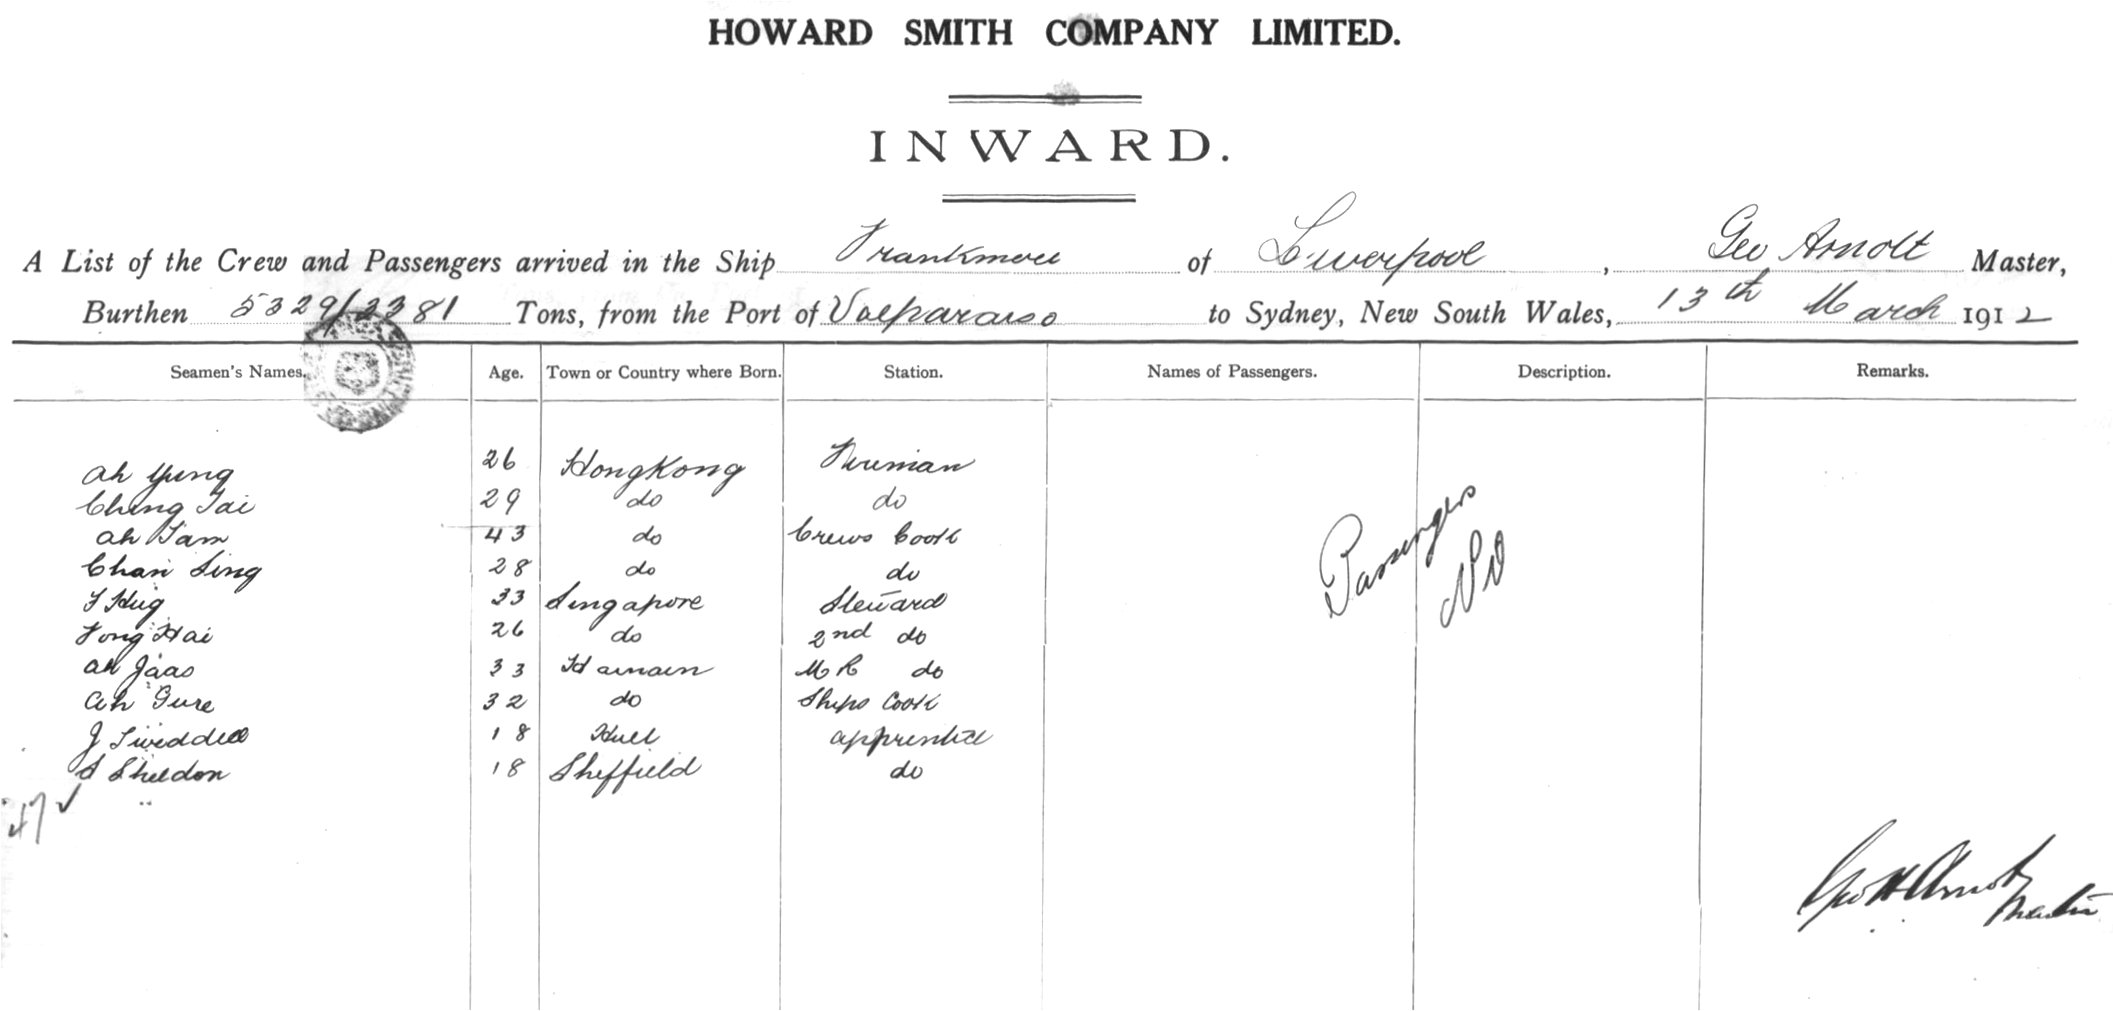 HOWARD SMITH COMPANY LIMITED.
INWARD.
A List of the Crew and Passengers arrived in the Ship Frankmere of Liverpool, Geo Arnott Master,
Burthen 5329/3381 Tons, from the Port of Valparaiso to Sydney, New South Wales, 13th March 1912
Seamen's Names. Age. Town or Country where Born. Station. Names of Passengers. Description. Remarks.
Ah Yung 26 HongKong Fireman
Ching Tai 29 do do
Ah Tam 43 do Crews Cook
Chan Sing 28 do do
33 Singapore Steward
Fong Hai 26 do 2nd do
Ah Jaas 33 Hainain M R do
Ah Gure 32 do Ships Cook
J Tweddell 18 Hull apprentice
S Sheldon 18 Sheffield do
Passengers
Nil
47 ✓
Geo H Arnott
Master